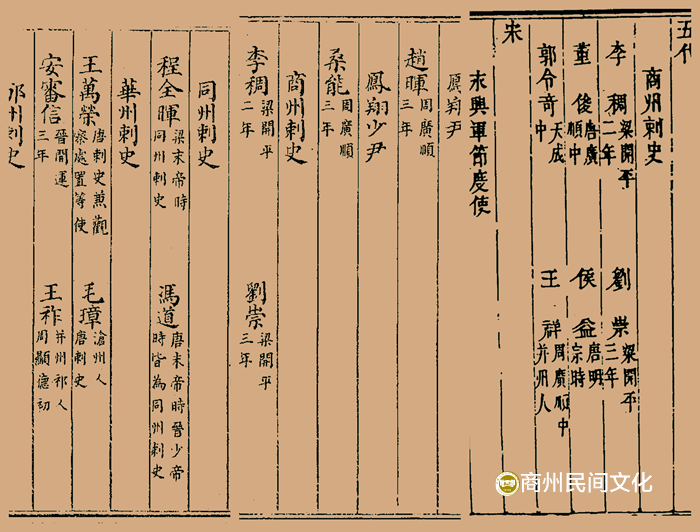 五代
商州刺史
李稠梁開平二年 劉崇梁開平三年
董俊唐廣順中 侯益唐明宗時
郭令奇天成中 王祥周廣順中并州人
宋
永興軍節度使
鳳翔尹
趙暉周廣順三年
鳳翔少尹
桑能周廣順三年
商州刺史
李稠梁開平二年 劉崇梁開平三年
同州刺史
程全暉梁末帝時同州刺史 馮道唐末帝時晉少帝時皆為同州刺史
華州刺史
王萬榮唐刺史兼觀察處置等使 毛璋滄州人唐刺史
安審信晉開運三年 王祚并州祁人周顯德初
州刺史
商州民间文化